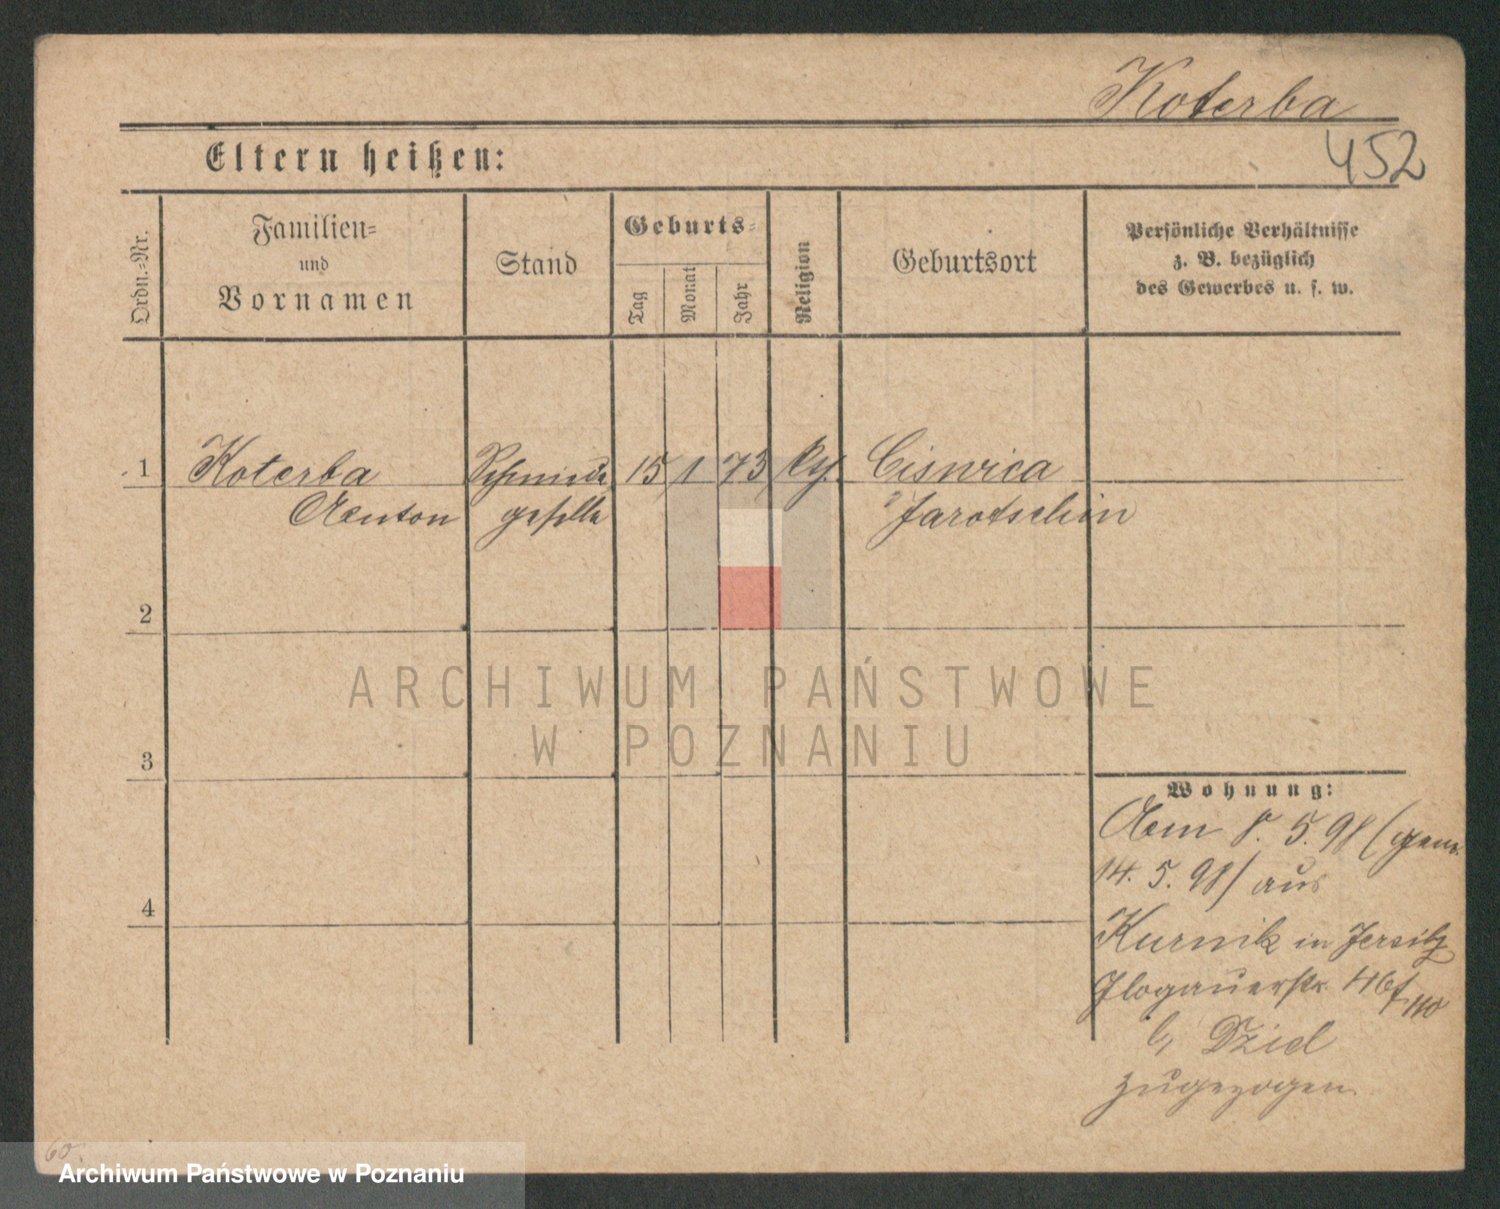 Koterba
452
Eltern heißen:
Ordn.=Nr.
Familien=
und
Vornamen
Stand
Geburts=
Tag
Monat
Jahr
Religion
Geburtsort
Persönliche Verhältnisse
z. B. bezüglich
des Gewerbes u. s. w.
1 Koterba Schmiede 15 1 73 Ciswica
Anton geselle Jarotschin
2
ARCHIWUM PAŃSTWOWE
W POZNANIU
3
Wohnung:
Am 8. 5. 98 (gem.
14. 5. 98) aus
4
Kurnik in Jersitz
Glogauerstr.
b/ Dziel
zugezogen.
60.
Archiwum Państwowe w Poznaniu